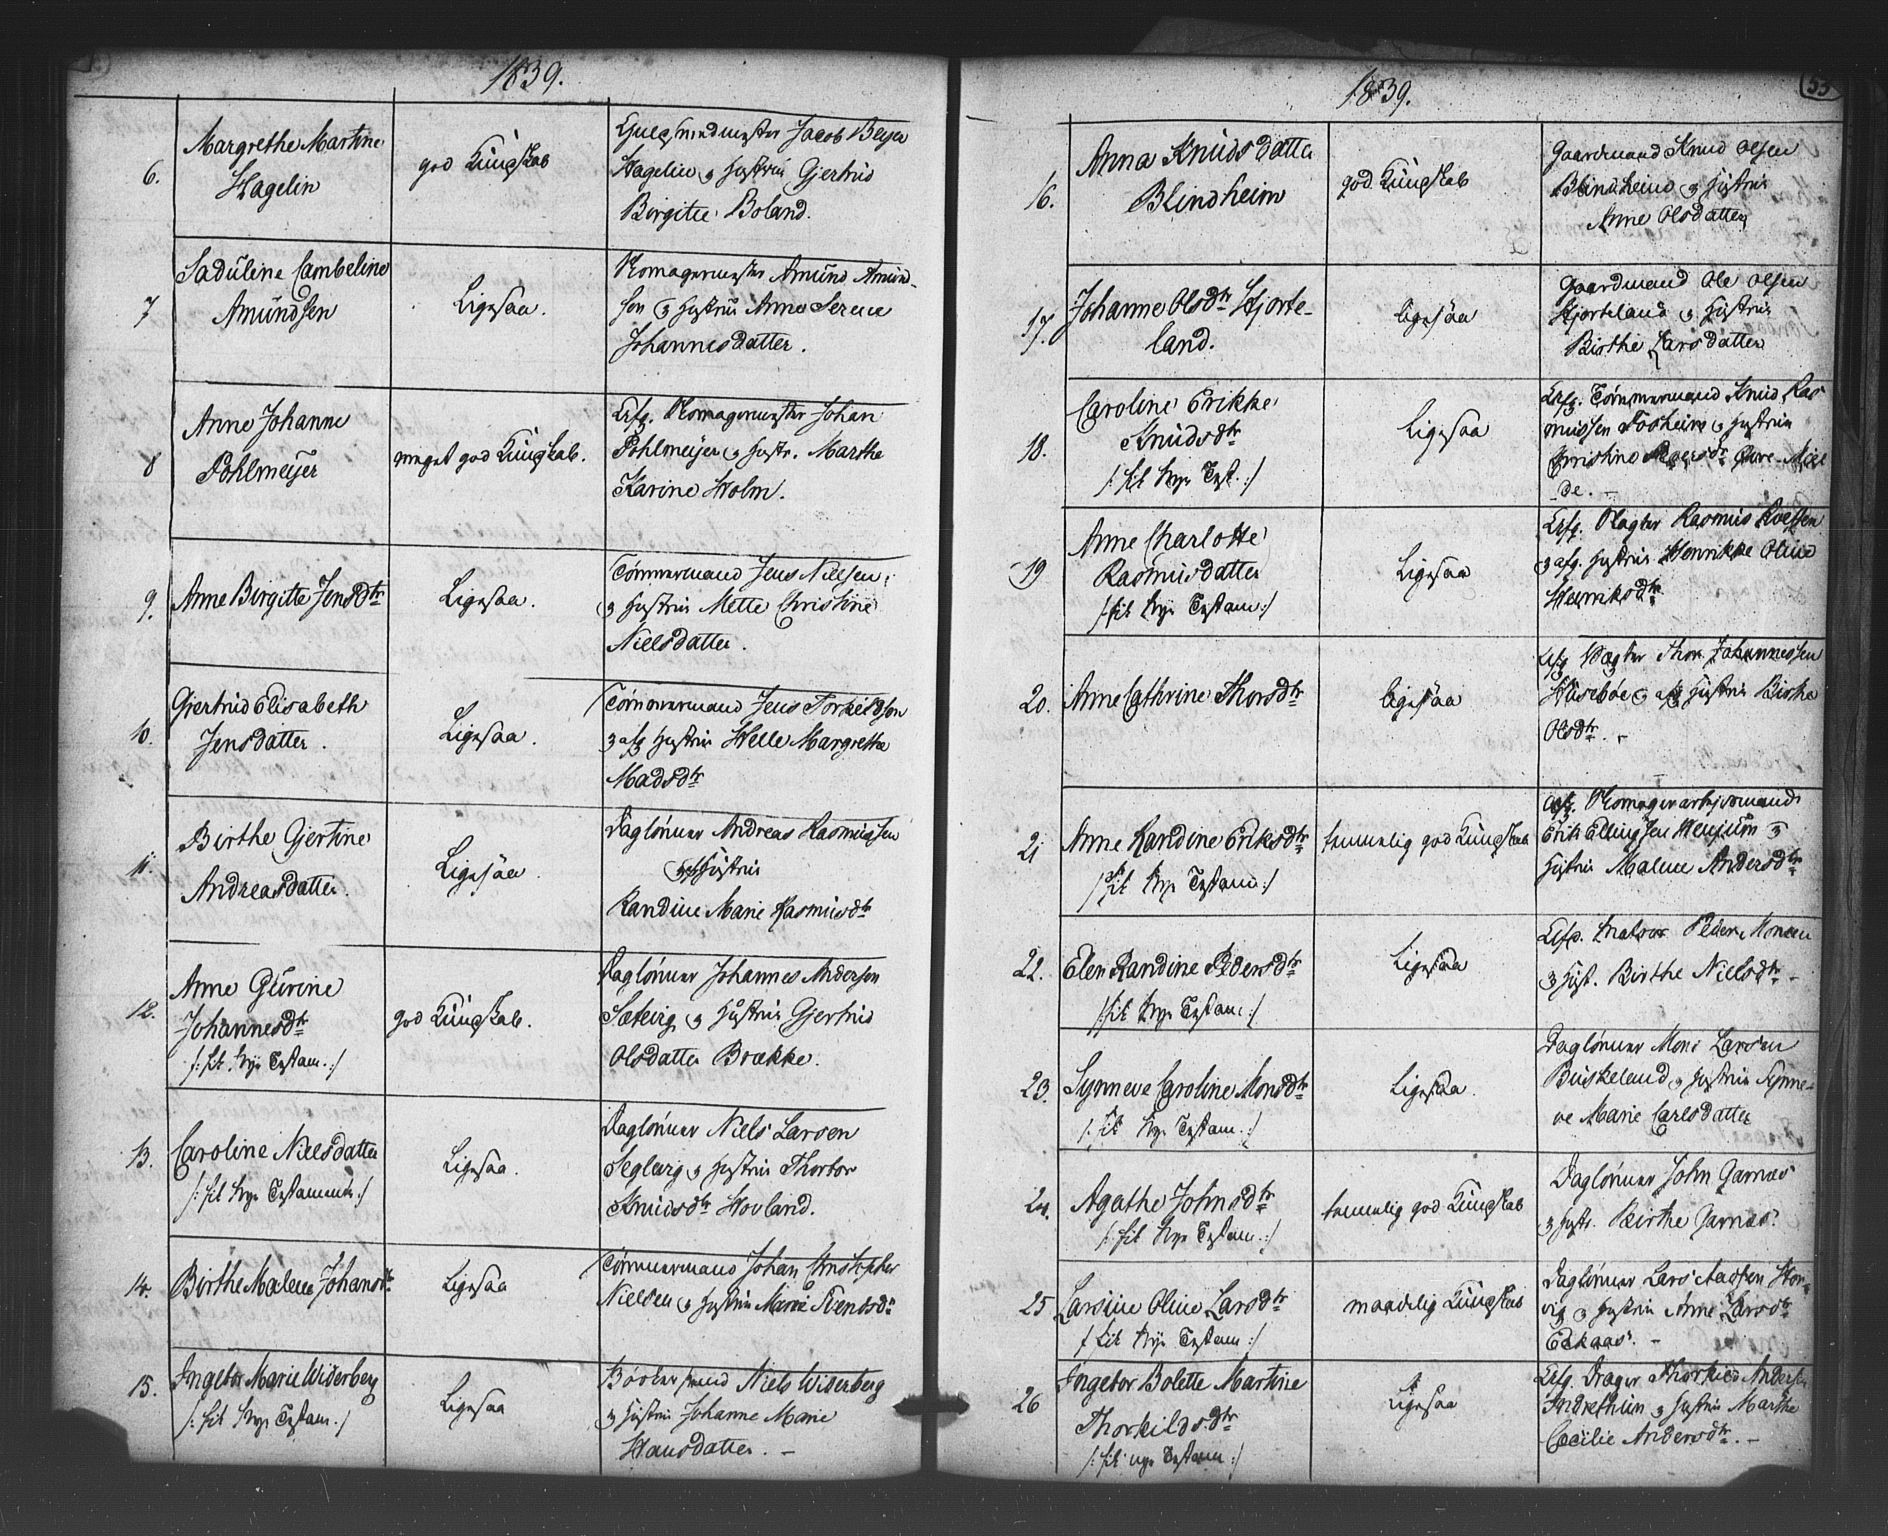 1839.
6.
Margrethe Martine
Hagelin
god Kundskab
Jacob Beyer
Hagelin og Hustru Gjertrud
Birgitte Boland.
7
Saduline Cambeline
Amundsen
Ligesaa.
Amund Amund-
sen og Hustru Anne Serene
Johannesdatter.
8
Anne Johanne
Pohlmeyer
meget god Kundskab.
Johan
Pohlmeyer og Hustr. Marthe
Karine Holm.
9.
Anne Birgitte Jensdtr
Ligesaa.
Tømmermand Jens Nielsen
og Hustru Mette Christine
Nielsdatter.
10.
Gjertrud Elisabeth
Jensdatter.
Ligesaa.
Tømmermand Jens Torkildsen
og afg Hustru Helle Margrethe
Madsdtr
11.
Birthe Gjertine
Andreasdatter.
Ligesaa.
Daglønner Andreas Rasmussen
og Hustru
Randine Marie Rasmusdtr
12.
Anne Gurine
Johannesdtr
/: fik Nye Testam. :/
god Kundskab.
Daglønner Johannes Andersen
og Hustru Gjertrud
Olsdatter Brække.
13.
Caroline Nielsdatter
/: fik Nye Testamente :/
Ligesaa.
Daglønner Niels Larsen
og Hustru Thorbor
Knudsdtr Hovland.
14.
Birthe Malene Johansdtr
Ligesaa
Tømmermand Johan Christopher
Nielsen og Hustru Marie Svendsdr
15.
Ingebor Marie Widerberg
/: fik Nye Testam. :/
Ligesaa
Niels Widerberg
og Hustru Johanne Marie
Hansdatter. –
1839.
55
16.
Anna Knudsdatter
Blindheim
god Kundskab
Gaardmand Knud Olsen
Blindheim og Hustru
Anne Olsdatter
17.
Johanne Olsdtr Hjorte-
land.
ligesaa
Gaardmand Ole Olsen
Hjorteland og Hustru
Birthe Larsdatter
18.
Caroline Erikke
Knudsdtr
/: fik Nye Test. :/
Ligesaa
Tømmermand Knud Ras
mussen og Hustru
de. –
19
Anne Charlotte
Rasmusdatter
/: fik Nye Testam :/
Ligesaa
Rasmus
og afg. Hustru Henrikke Oline
Henriksdtr
20.
Anne Cathrine Thorsdtr
ligesaa
Vægter Thor Johannessen
Husebøe og afg Hustru Birthe
Olsdtr. –
21
Anne Randine Eriksdtr
/: fik Nye Testam :/
temmelig god Kundskab
Erik Ellingsen og
Hustru Malene Andersdtr
22.
Elen Randine Pedersdtr
/: fik Nye Testam :/
Ligesaa
Matros Peder Monsen
og Hust. Birthe Nielsdtr –
23.
Synneve Caroline Monsdtr
/: fik Nye Testam. :/
Ligesaa.
Daglønner Mons Larsen
Buskeland og Hustru Synne-
ve Marie Carlsdatter
24.
Agathe Johnsdtr
/: fik Nye Testam. :/
temmelig god Kundskab
Daglønner John Garnæs
og Hustr. Birthe Garnæs.
25
Larsine Oline Larsdtr
/: fik Nye Testam :/
maadelig Kundskab
Daglønner Lars
og Hustru Anne Larsdtr
Eekaas. –
26
Ingebor Bolette Martine
Thorkildsdtr
/: fik nye Testam :/
Ligesaa
Drager Thorkild Anders
og Hustru Marthe
Cecilie Andersdtr. –